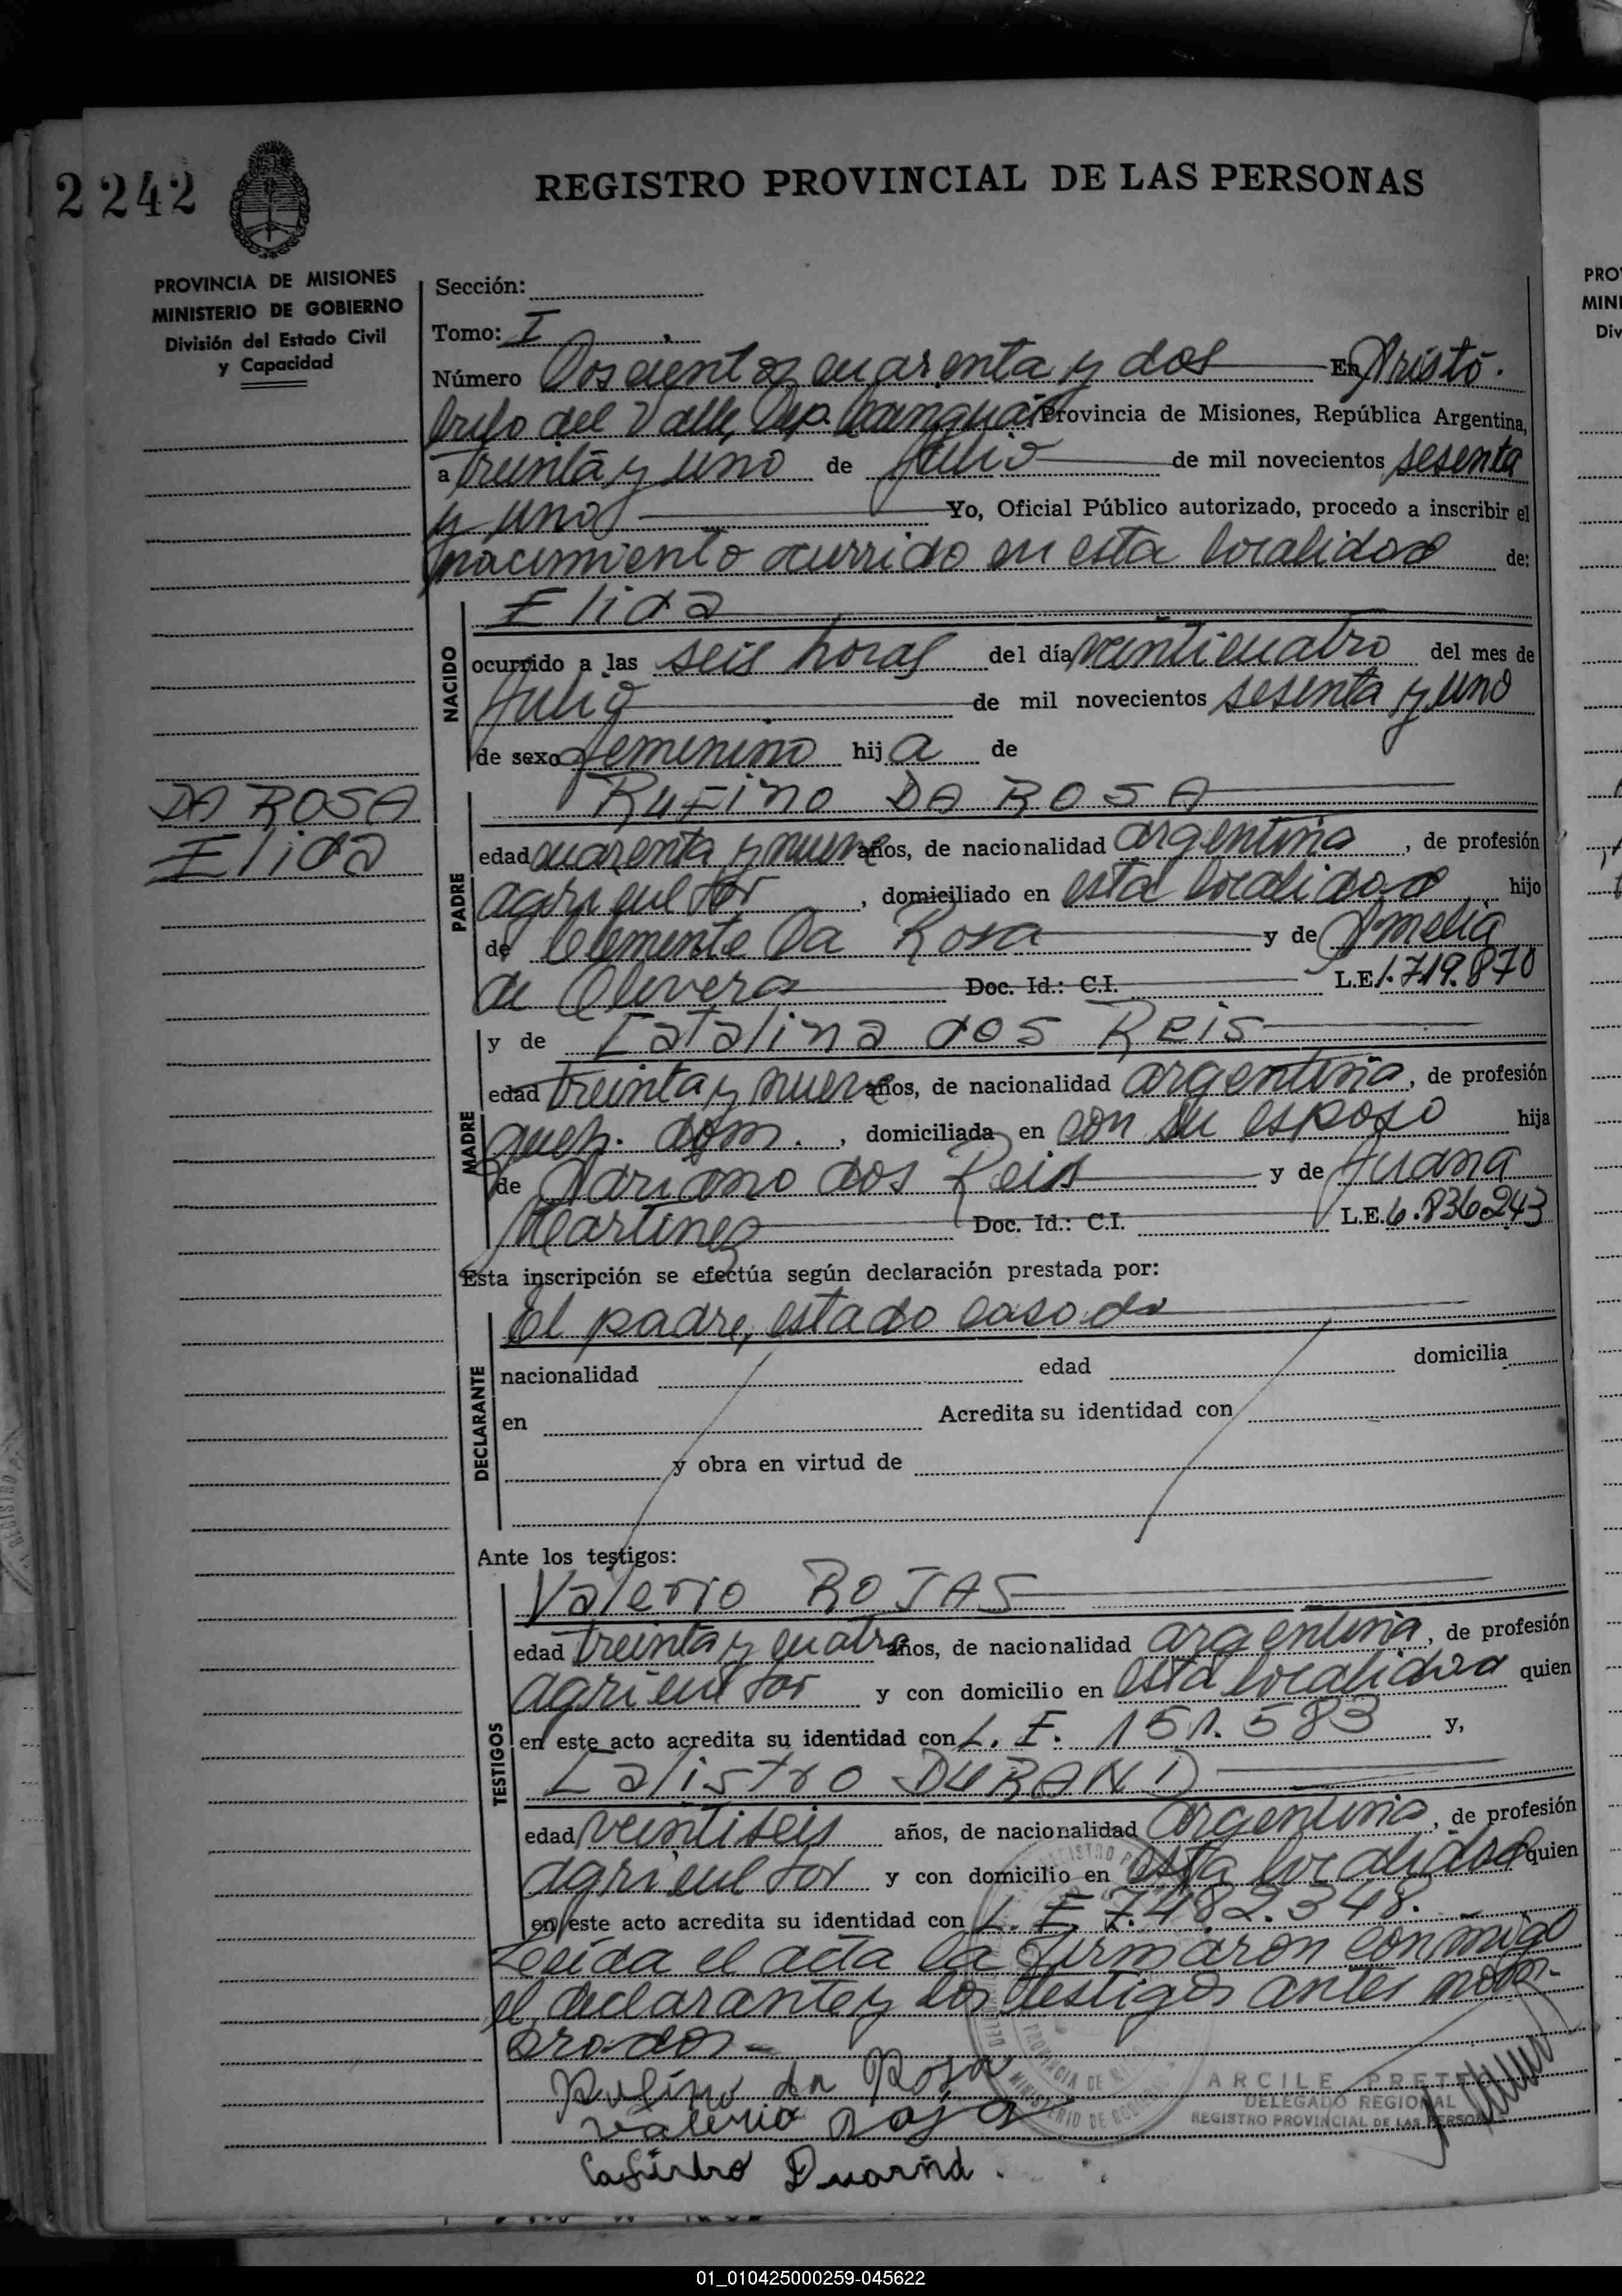 2242
REGISTRO PROVINCIAL DE LAS PERSONAS
PROVINCIA DE MISIONES
MINISTERIO DE GOBIERNO
División del Estado Civil
y Capacidad
Sección:
Tomo: I
Número Doscientos cuarenta y dos En Aristó-
bulo del Valle, Dep. Provincia de Misiones, República Argentina,
a treinta y uno de Julio de mil novecientos sesenta
y uno Yo, Oficial Público autorizado, procedo a inscribir el
nacimiento ocurrido en esta localidad de:
NACIDO
Elida
ocurrido a las seis horas del día veinticuatro del mes de
Julio de mil novecientos sesenta y uno
de sexo femenino hija de
DA ROSA
Elida
PADRE
Rufino DA ROSA
edad cuarenta y nueve años, de nacionalidad argentina, de profesión
agricultor, domiciliado en esta localidad hijo
de Clemente Da Rosa y de Amelia
de Olivera Doc. Id.: C.I. L.E. 1.719.870
MADRE
y de Catalina dos Reis
edad treinta y nueve años, de nacionalidad argentina, de profesión
queh. dom., domiciliada en con su esposo hija
de Mariano dos Reis y de Juana
Martinez Doc. Id.: C.I. L.E. 6.836.243
Esta inscripción se efectúa según declaración prestada por:
DECLARANTE
El padre, estado casado
nacionalidad edad domicilia
en Acredita su identidad con
y obra en virtud de
Ante los testigos:
TESTIGOS
Valerio ROJAS
edad treinta y cuatro años, de nacionalidad argentina, de profesión
agricultor y con domicilio en esta localidad quien
en este acto acredita su identidad con L. E. 151.583 y,
Calistro DURAND
edad veintiseis años, de nacionalidad argentina, de profesión
agricultor y con domicilio en esta localidad quien
en este acto acredita su identidad con L. E. 7.482.348.
Leída el acta la firmaron conmigo
el declarante y los testigos antes nom-
brados.-
Rufino da Rosa
Valerio Rojas
Duarnd.
ARCILE PRETT
DELEGADO REGIONAL
REGISTRO PROVINCIAL DE LAS PERSONAS
PROVINCIA DE
MINISTERIO DE GOBIERNO
PRO
MINI
Div
01_010425000259-045622